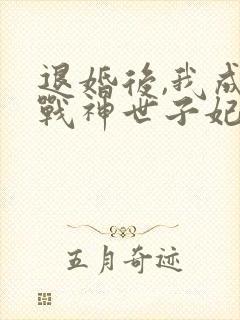 退婚後,我成
戰神世子妃
五月奇迹